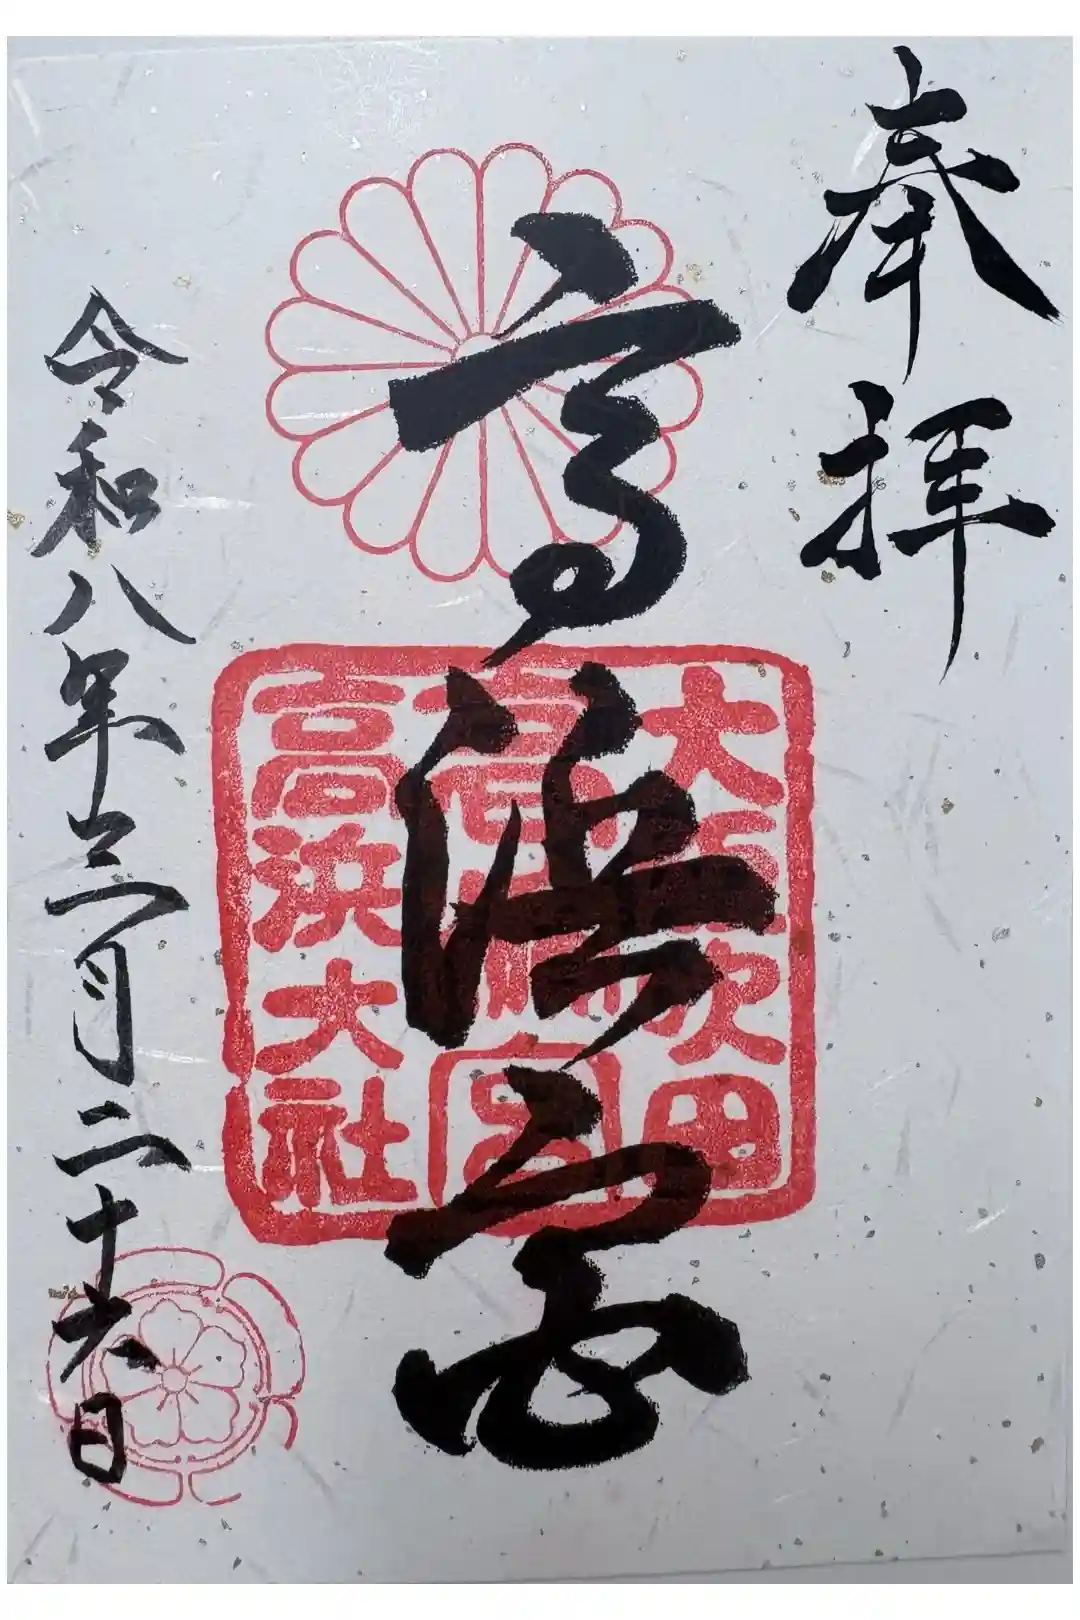 奉拝
高浜宮
大阪吹田
高浜大社
令和八年三月二十六日